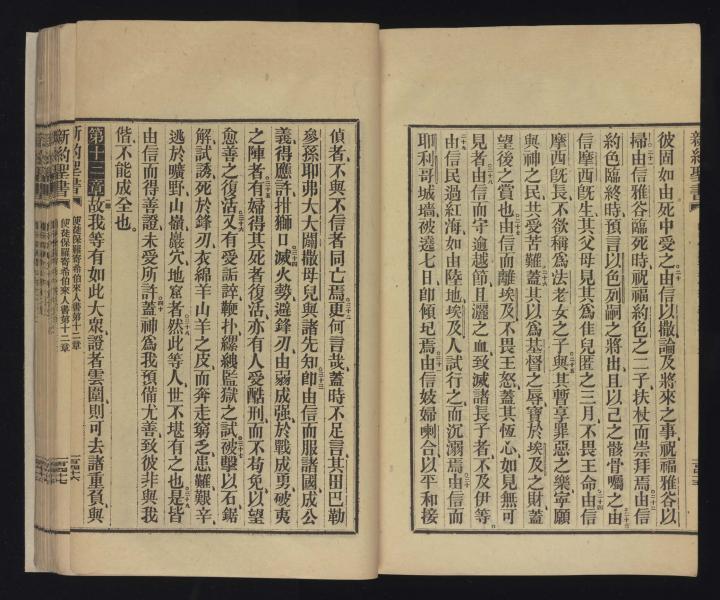 新約聖書
彼固如由死中受之由信以撒論及將來之事祝福雅谷以
掃由信雅谷臨死時祝福約色之二子扶杖而崇拜焉由信
約色臨終時預言以色列嗣之將出且以己之骸骨囑之由
信摩西旣生其父母見其爲佳兒匿之三月不畏王命由信
摩西旣長不欲稱爲法老女之子與其暫享罪惡之樂寧願
與神之民共受苦難蓋其以爲基督之辱寶於埃及之財蓋
望後之賞也由信而離埃及不畏王怒蓋其恆心如見無可
見者由信而守逾越節且灑之血致滅諸長子者不及伊等
由信民過紅海如由陸地埃及人試行之而沉溺焉由信而
耶利哥城墻被遶七日卽傾圮焉由信妓婦喇合以平和接
偵者不與不信者同亡焉更何言哉蓋時不足言其田巴勒
參孫耶弗大大闢撒母兒與諸先知卽由信而服諸國成公
義得應許拑獅口滅火勢避鋒刃由弱成强於戰成勇破夷
之陣者有婦得其死者復活亦有人受酷刑而不苟免以望
愈善之復活又有受詬誶鞭扑縲絏監獄之試被擊以石鋸
解試誘死於鋒刃衣綿羊山羊之皮而奔走窮乏患難艱辛
逃於曠野山嶺巖穴地窟者然此等人世不堪有之也是皆
由信而得善證未受所許蓋神爲我預備尤善致彼非與我
偕不能成全也。
第十二章故我等有如此大衆證者雲圍則可去諸重負與
新約聖書 使徒保羅寄希伯來人書第十二章 一百四十六
新約聖書 使徒保羅寄希伯來人書第十二章 一百四十七